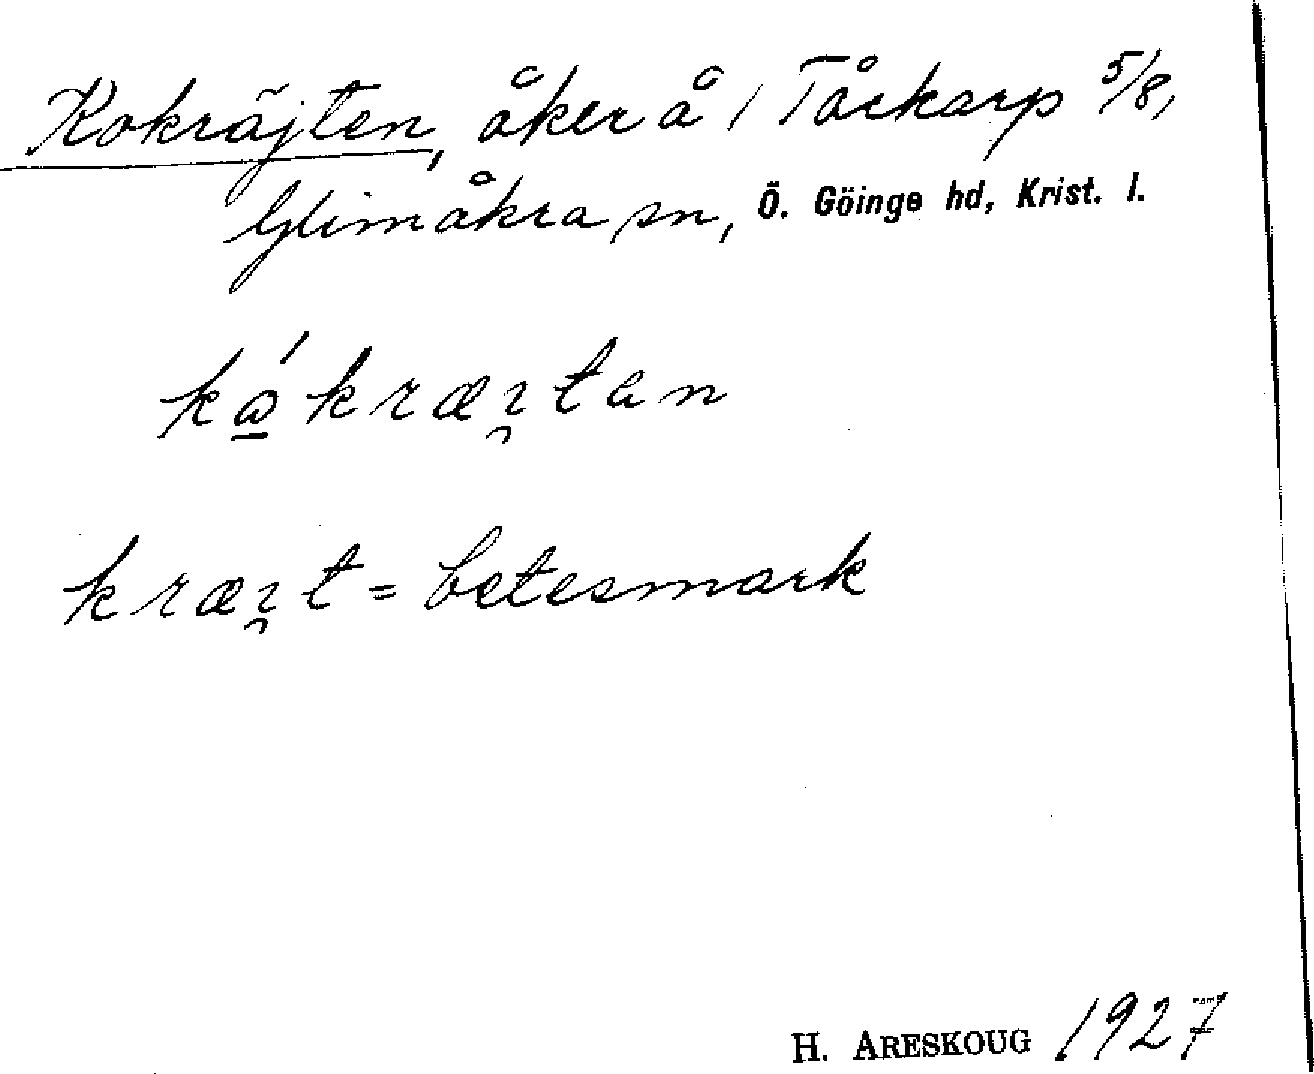 Kokräjten, åker å 1 Tåckarp 5/8,
Glimåkra sn, Ö. Göinge hd, Krist. l.
kækræıtan
kræıt = betesmark
H. ARESKOUG 1927